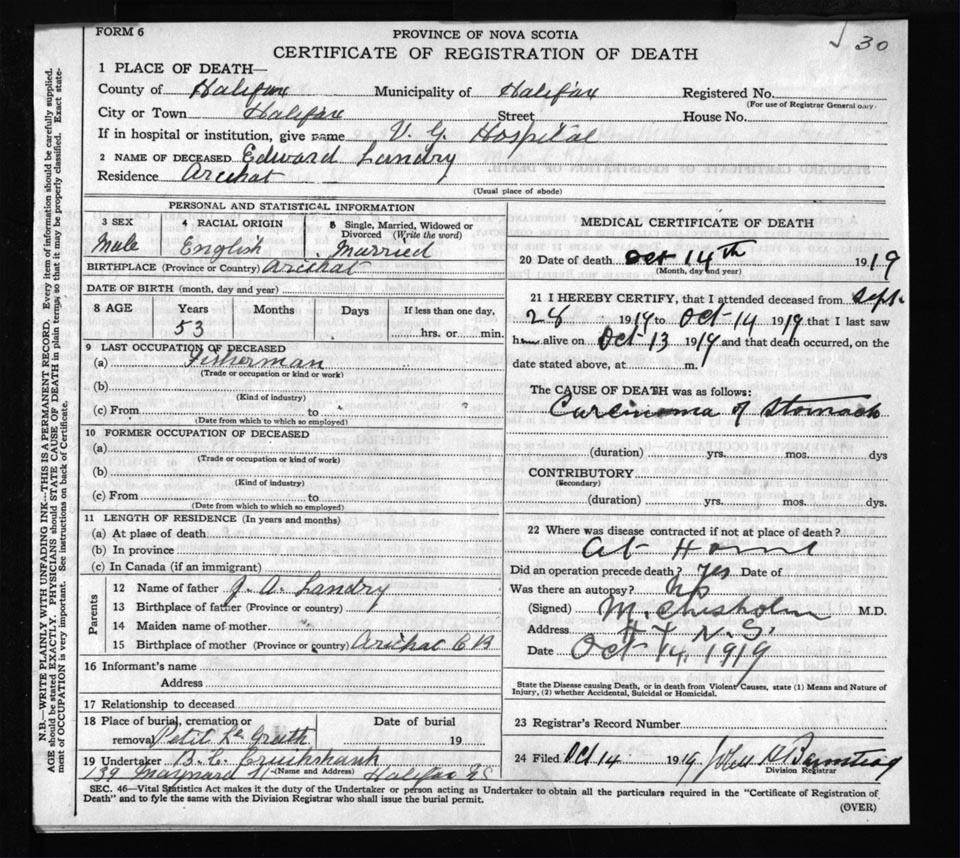 FORM 6
PROVINCE OF NOVA SCOTIA
30
CERTIFICATE OF REGISTRATION OF DEATH
1 PLACE OF DEATH—
County of Halifax Municipality of Halifax Registered No.
(For use of Registrar General only.)
City or Town Halifax Street House No.
If in hospital or institution, give name V. G. Hospital
2 NAME OF DECEASED Edward Landry
Residence Arichat
(Usual place of abode)
PERSONAL AND STATISTICAL INFORMATION
3 SEX 4 RACIAL ORIGIN 5 Single, Married, Widowed or Divorced (Write the word)
Male English Married
BIRTHPLACE (Province or Country) Arichat
DATE OF BIRTH (month, day and year)
8 AGE Years Months Days If less than one day,
53 hrs. or min.
9 LAST OCCUPATION OF DECEASED
(a) Fisherman
(Trade or occupation or kind of work)
(b)
(Kind of industry)
(c) From to
(Date from which to which so employed)
10 FORMER OCCUPATION OF DECEASED
(a)
(Trade or occupation or kind of work)
(b)
(Kind of industry)
(c) From to
(Date from which to which so employed)
11 LENGTH OF RESIDENCE (In years and months)
(a) At place of death
(b) In province
(c) In Canada (if an immigrant)
Parents
12 Name of father J. A. Landry
13 Birthplace of father (Province or country)
14 Maiden name of mother
15 Birthplace of mother (Province or country) Arichat C B
16 Informant's name
Address
17 Relationship to deceased
18 Place of burial, cremation or Date of burial
removal Petit De Grath 19
19 Undertaker B. C. Cruikshank
139 Maynard St (Name and Address) Halifax NS
MEDICAL CERTIFICATE OF DEATH
20 Date of death Oct 14th 1919
(Month, day and year)
21 I HEREBY CERTIFY, that I attended deceased from Sept.
28 1919 to Oct 14 1919 that I last saw
him alive on Oct 13 1919 and that death occurred, on the
date stated above, at m.
The CAUSE OF DEATH was as follows:
Carcinoma of Stomach
(duration) yrs. mos. dys
CONTRIBUTORY
(Secondary)
(duration) yrs. mos. dys.
22 Where was disease contracted if not at place of death?
At Home
Did an operation precede death? Yes Date of
Was there an autopsy? No
(Signed) M. Chisholm M.D.
Address Hfx N.S.
Date Oct 14, 1919
State the Disease causing Death, or in death from Violent Causes, state (1) Means and Nature of
Injury, (2) whether Accidental, Suicidal or Homicidal.
23 Registrar's Record Number
24 Filed Oct 14 1919
Division Registrar
SEC. 46—Vital Statistics Act makes it the duty of the Undertaker or person acting as Undertaker to obtain all the particulars required in the "Certificate of Registration of
Death" and to fyle the same with the Division Registrar who shall issue the burial permit.
(OVER)
N.B.—WRITE PLAINLY WITH UNFADING INK—THIS IS A PERMANENT RECORD. Every item of information should be carefully supplied.
AGE should be stated EXACTLY. PHYSICIANS should STATE CAUSE OF DEATH in plain terms, so that it may be properly classified. Exact state-
ment of OCCUPATION is very important. See instructions on back of Certificate.